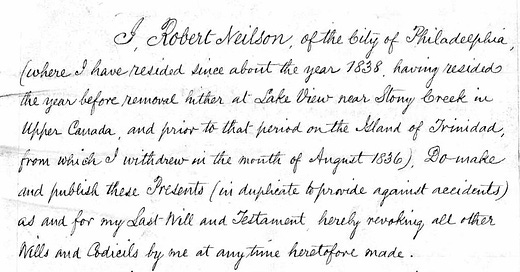 I, Robert Neilson, of the City of Philadelphia,
(where I have resided since about the year 1838, having resided
the year before removal hither at Lake View near Stony Creek in
Upper Canada, and prior to that period on the Island of Trinidad,
from which I withdrew in the month of August 1836), Do make
and publish these Presents (in duplicate to provide against accidents)
as and for my Last Will and Testament hereby revoking all other
Wills and Codicils by me at any time heretofore made.